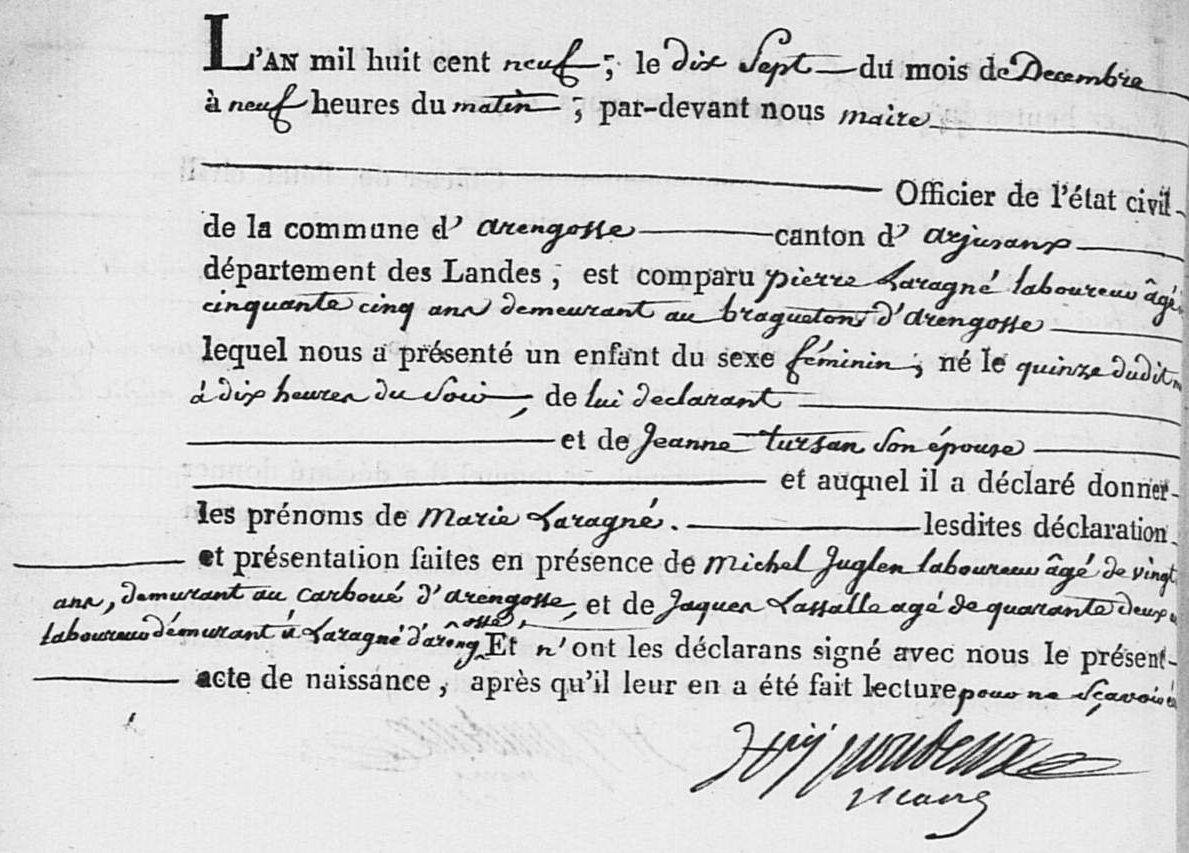 L'AN mil huit cent neuf, le dix Sept du mois de Decembre
à neuf heures du matin ; par-devant nous maire
Officier de l'état civil
de la commune d' arengosse canton d' arjusanx
département des Landes ; est comparu pierre Laragné laboureur âgé
cinquante cinq ans demeurant au braguetons d'arengosse
lequel nous a présenté un enfant du sexe féminin ; né le quinze dudit m
à dix heures du Soir, de lui declarant
et de Jeanne tursan Son épouse
et auquel il a déclaré donner
les prénoms de Marie Laragné. lesdites déclaration
et présentation faites en présence de michel Juglen laboureur âgé de vingt
ans, demurant au carboué d'arengosse, et de Jaques Lassalle agé de quarante deux
laboureur démurant à Laragné d'arengosse, Et n'ont les déclarans signé avec nous le présent
acte de naissance, après qu'il leur en a été fait lecture pour ne sçavoir